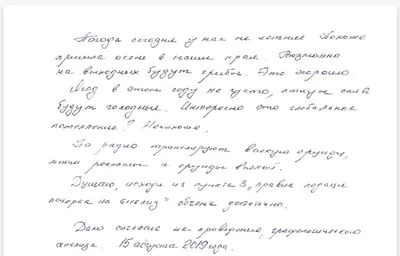 Погода сегодня у нас не летняя. Похоже
пришла осень в наши края. Возможно
на выходных будут грибы. Это хорошо.
Ягод в этом году не густо, птицы
будут голодные. Интересно это глобальное
потепление? Не похоже.
По радио транслируют всякую ерунду,
много рекламы и ерунды всякой.
Думаю, исходя из пункта 3, правил подачи
почерка на анализ - объема достаточно.
Даю согласие на проведение графологического
анализа. 15 августа 2019 года.